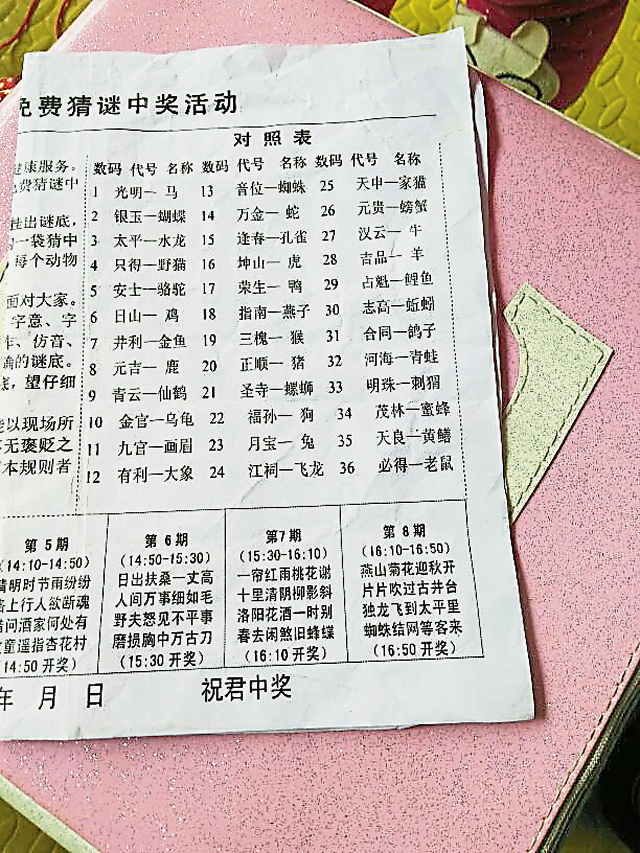 免费猜谜中奖活动
对照表
健康服务。
费猜谜中
挂出谜底,
一袋猜中
每个动物
面对大家。
字意、字
作、仿音、
确的谜底。
底,望仔细
能以现场所
无褒贬之
本规则者
数码 代号 名称 数码 代号 名称 数码 代号 名称
1 光明—马 13 音位—蜘蛛 25 天申—家猫
2 银玉—蝴蝶 14 万金—蛇 26 元贵—螃蟹
3 太平—水龙 15 逢春—孔雀 27 汉云—牛
4 只得—野猫 16 坤山—虎 28 吉品—羊
5 安士—骆驼 17 荣生—鸭 29 占魁—鲤鱼
6 日山—鸡 18 指南—燕子 30 志高—蚯蚓
7 井利—金鱼 19 三槐—猴 31 合同—鸽子
8 元吉—鹿 20 正顺—猪 32 河海—青蛙
9 青云—仙鹤 21 圣寺—螺蛳 33 明珠—刺猬
10 金官—乌龟 22 福孙—狗 34 茂林—蜜蜂
11 九官—画眉 23 月宝—兔 35 天良—黄鳝
12 有利—大象 24 江祠—飞龙 36 必得—老鼠
第5期
(14:10-14:50)
清明时节雨纷纷
路上行人欲断魂
借问酒家何处有
童遥指杏花村
(14:50开奖)
第6期
(14:50-15:30)
日出扶桑一丈高
人间万事细如毛
野夫怒见不平事
磨损胸中万古刀
(15:30开奖)
第7期
(15:30-16:10)
一帘红雨桃花谢
十里清阴柳影斜
洛阳花酒一时别
春去闲煞旧蜂蝶
(16:10开奖)
第8期
(16:10-16:50)
燕山菊花迎秋开
片片吹过古井台
独龙飞到太平里
蜘蛛结网等客来
(16:50开奖)
年 月 日 祝君中奖